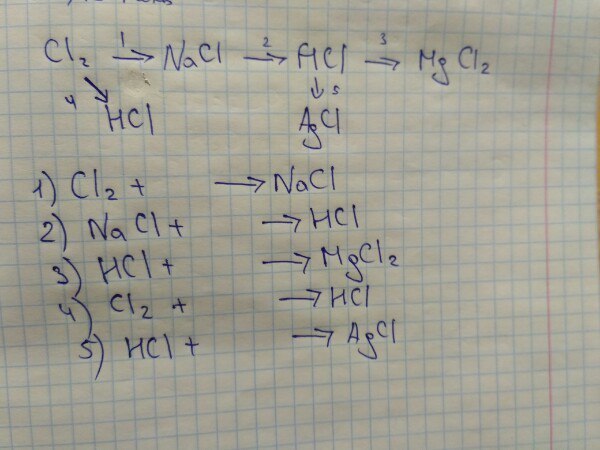 Cl₂ →¹ NaCl →² HCl →³ MgCl₂
4 ↘ HCl ↓ 5 AgCl
1) Cl₂ + → NaCl
2) NaCl + → HCl
3) HCl + → MgCl₂
4) Cl₂ + → HCl
5) HCl + → AgCl